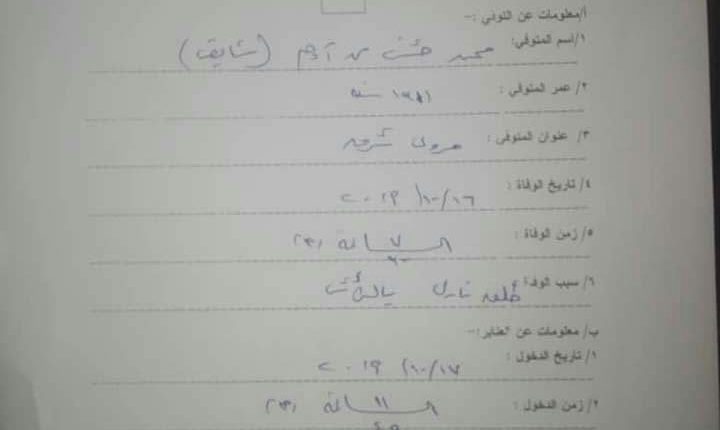 أ/معلومات عن المتوفي :-
١/اسم المتوفي: محمد آدم (شايق)
٢/ عمر المتوفي : ١٩٨١ سنة
٣/ عنوان المتوفي :
٤/ تاريخ الوفاة : ١٦/١٠/ ٢٠١٩
٥/ زمن الوفاة : الساعة ٧
٦/ سبب الوفاة طلق ناري بالرأس
ب/ معلومات عن العنابر:-
١/ تاريخ الدخول : ١٧/١٠/ ٢٠١٩
٢/ زمن الدخول : الساعة ١١
٤٥